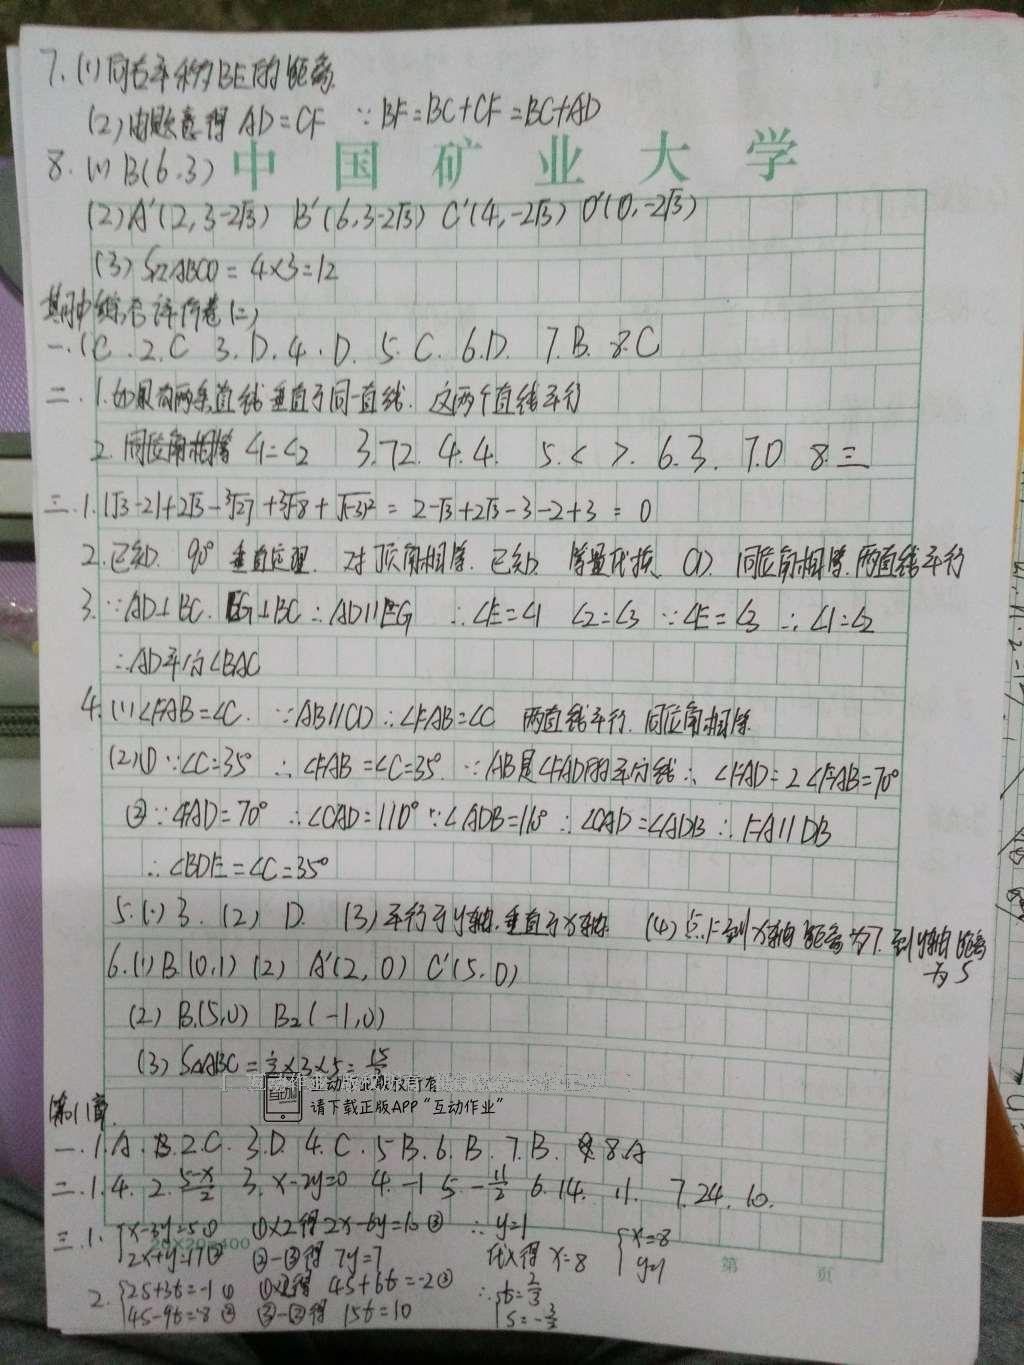 7. (1) 向右平移BE的距离.
(2) 由题意得 AD=CF ∵BF=BC+CF=BC+AD
中国矿业大学
8. (1) B(6.3)
(2) A′(2, 3-2√3) B′(6, 3-2√3) C′(4, -2√3) O′(0, -2√3)
(3) S▱ABCO = 4×3=12
期中综合评价卷(二)
一. 1C. 2. C 3. D. 4. D. 5. C. 6. D. 7. B. 8. C
二. 1. 如果有两条直线垂直于同一直线. 这两个直线平行
2. 同位角相等 ∠1=∠2 3. 72. 4. 4. 5. < >. 6. 3. 7. 0 8. 三
三. 1. |√3-2|+2√3-∛27+∛-8+√(-3)² = 2-√3+2√3-3-2+3 = 0
2. 已知. 90° 垂直定理. 对顶角相等. 已知. 等量代换. CD. 同位角相等. 两直线平行
3. ∵AD⊥BC. EG⊥BC ∴AD∥EG ∴∠E=∠1 ∠2=∠3 ∵∠E=∠3 ∴∠1=∠2
∴AD平分∠BAC
4. (1) ∠FAB=∠C. ∵AB∥CD ∴∠FAB=∠C 两直线平行. 同位角相等.
(2)① ∵∠C=35° ∴∠FAB=∠C=35°. ∵AB是∠FAD的平分线∴ ∠FAD=2∠FAB=70°
② ∵∠FAD=70° ∴∠CAD=110° ∵∠ADB=110° ∴∠CAD=∠ADB ∴FA∥DB
∴∠BDE=∠C=35°
5. (1) 3. (2) D. (3) 平行于y轴. 垂直于x轴. (4) 点F到x轴距离为7. 到y轴距离
为5
6. (1) B(0,1) (2) A′(2, 0) C′(5, 0)
(2) B₁(5,0) B₂(-1,0)
(3) S△ABC = ½×3×5=
互动作业 版权所有
请下载正版APP“互动作业”
一. 1. A. 2. C. 3. D. 4. C. 5 B. 6. B. 7. B. 8. A
二. 1. 4. 2. (5-x)/2 3. x-2y=0 4. -1 5. -11/2 6. 14. 11. 7. 24. 10.
三. 1. {x-3y=5① ①×2得 2x-6y=10③ ∴y=1 {x=8
2x+y=17② ②-③得 7y=7 代入得 x=8 y=1
20×20=400
第 页
2. {2s+3t=-1① ①×2得 4s+6t=-2③ ∴{t=2/3
4s-9t=-8② ③-②得 15t=10 s=-3/2